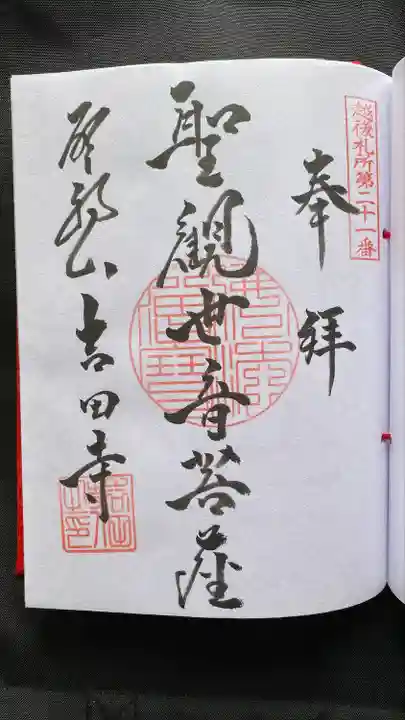 越後札所第二十一番
奉拝
聖観世音菩薩
吉田寺